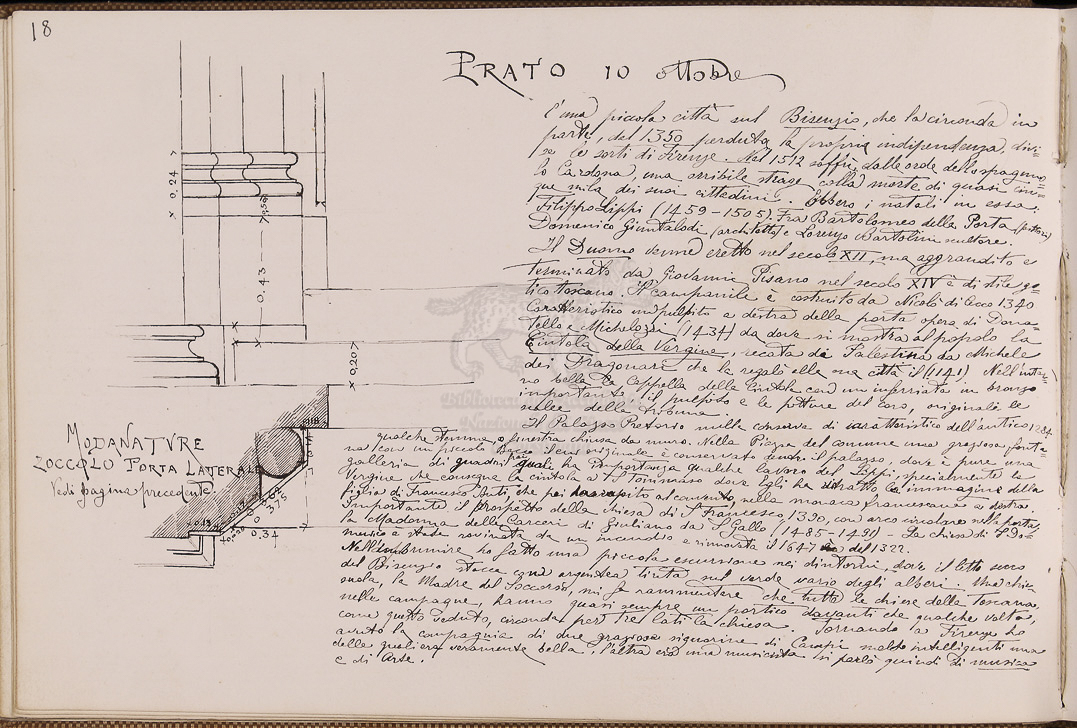 18
PRATO 10 ottobre
È una piccola città sul Bisenzio, che la circonda in
parte, dal 1350 perduta la propria indipendenza, divi=
se le sorti di Firenze. Nel 1512 soffrì, dalle orde dello spagnuo=
lo Cardona, una orribile strage colla morte di quasi cin=
que mila dei suoi cittadini. Ebbero i natali in essa.
Filippo Lippi (1459-1505). Fra Bartolomeo della Porta (pittori)
Domenico Giuntalodi (architetto) e Lorenzo Bartolini scultore.
Il Duomo venne eretto nel secolo XII, ma aggrandito e
terminato da Giovanni Pisano nel secolo XIV è di stile go=
tico toscano. Il campanile è costruito da Nicolò di Cecco 1340
Caratteristico un pulpito a destra della porta opera di Dona=
tello e Michelozzi (1434) da dove si mostra al popolo la
Cintola della Vergine, recata da Palestina da Michele
dei Dragonari che la regalò alla sua città il (1141) Nell'inter=
no bella la Cappella della Cintola con un inferriata in bronzo
importante, il pulpito e le pitture del coro, originale le
della tribuna.
Il Palazzo Pretorio nulla conserva di caratteristico dell'antico 1284
qualche stemma, o finestra chiusa da muro. Nella Piazza del comune una graziosa fonta=
na con un piccolo Bacco il cui originale è conservato dentro il palazzo, dove è pure una
galleria di quadri fra quali ha importanza qualche lavoro del Lippi, specialmente la
Vergine che consegna la cintola a S Tommaso dove Egli ha ritratto la immagine della
figlia di Francesco Buti, che poi ha rapito al convento, nella monaca francescana a destra.
Importante il prospetto della chiesa di S. Francesco 1390, con arco circolare nella porta,
la Madonna delle Carceri di Giuliano da S Gallo (1485-1491) - La chiesa di S Do=
menico e stata rovinata da un incendio e rinnovata il 1647 del 1322.
Nell'imbrunire ho fatto una piccola escursione nei dintorni, dove il letto secco
del Bisenzio stacca come argentea lista sul verde vario degli alberi. Una chie=
suola, la Madre del Soccorso, mi fa rammentare che tutte le chiese della Toscana
nelle campagne, hanno quasi sempre un portico davanti che qualche volta,
come questo veduto, circonda per tre lati la chiesa. Tornando a Firenze ho
avuto la compagnia di due graziose signorine di Campi molto intelligenti una
delle quali era veramente bella, l'altra era una musicista si parlò quindi di musica
e di Arte.
0,24
0,59
0,43
0,20
MODANATVRE
ZOCCOLO PORTA LATERALE
Vedi pagina precedente.
0,13
0,375
0,34